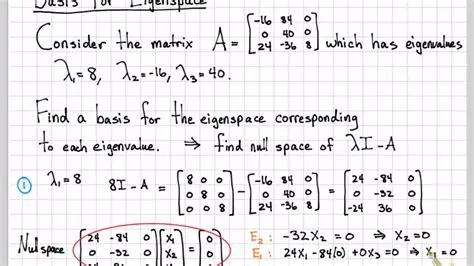 Basis for Eigenspace
Consider the matrix A = [-16 84 0; 0 40 0; 24 -36 8] which has eigenvalues
λ₁=8, λ₂=-16, λ₃=40.
Find a basis for the eigenspace corresponding
to each eigenvalue. ⇒ find null space of λI-A
① λ₁=8 8I-A = [8 0 0; 0 8 0; 0 0 8] - [-16 84 0; 0 40 0; 24 -36 8] = [24 -84 0; 0 -32 0; -24 36 0]
Nullspace [24 -84 0; 0 -32 0] [x₁; x₂] = [0; 0] E₂: -32x₂ = 0 ⇒ x₂ = 0
E₁: 24x₁ -84(0) +0x₃ = 0 ⇒ x₁ = 0